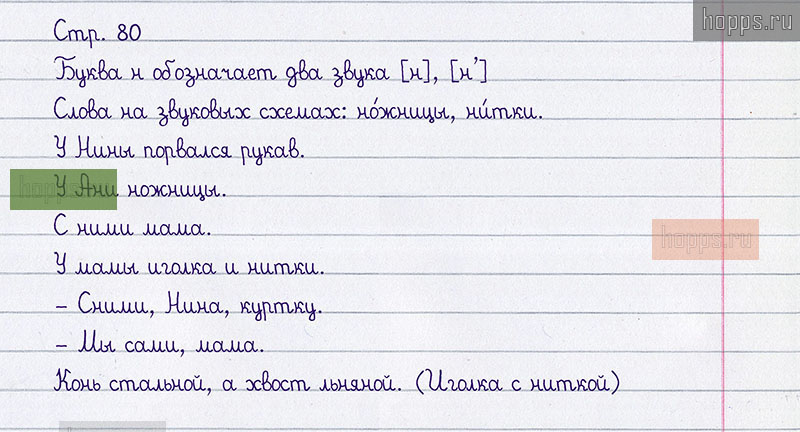 hopps.ru
Стр. 80
Буква н обозначает два звука [н], [н’]
Слова на звуковых схемах: но́жницы, ни́тки.
У Нины порвался рукав.
hopps.ru
У Ани ножницы.
С ними мама.
hopps.ru
У мамы иголка и нитки.
– Сними, Нина, куртку.
– Мы сами, мама.
Конь стальной, а хвост льняной. (Иголка с ниткой)